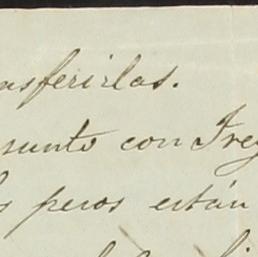 nsferirlas.
sunto con Frey
s pesos están